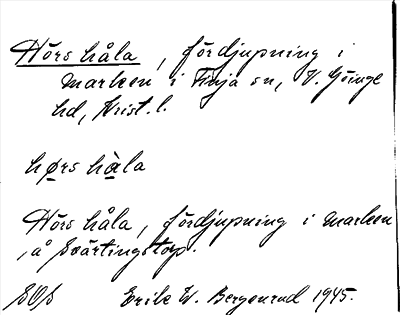 Hörs håla, fördjupning i
marken i Finja sn, V. Göinge
hd, Krist. l.
hørs hàla
Hörs håla, fördjupning i marken
å Svärtingstorp.
SOS Erik W. Bergenrud 1945.